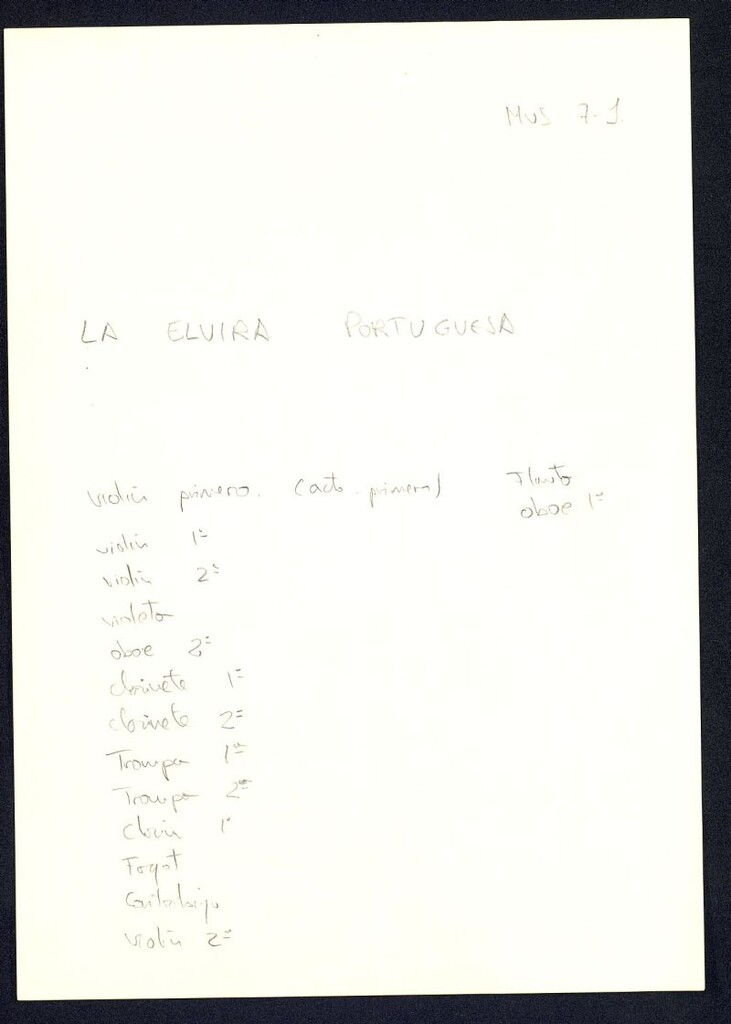 MUS 7-1
LA ELVIRA PORTUGUESA
violin primero. (acto primero)
Flauto
oboe 1º
violin 1º
violin 2º
violeta
oboe 2º
clarinete 1º
clarinete 2º
Trompa 1ª
Trompa 2ª
Clarin 1º
Fagot
Contrabajo
violin 2º